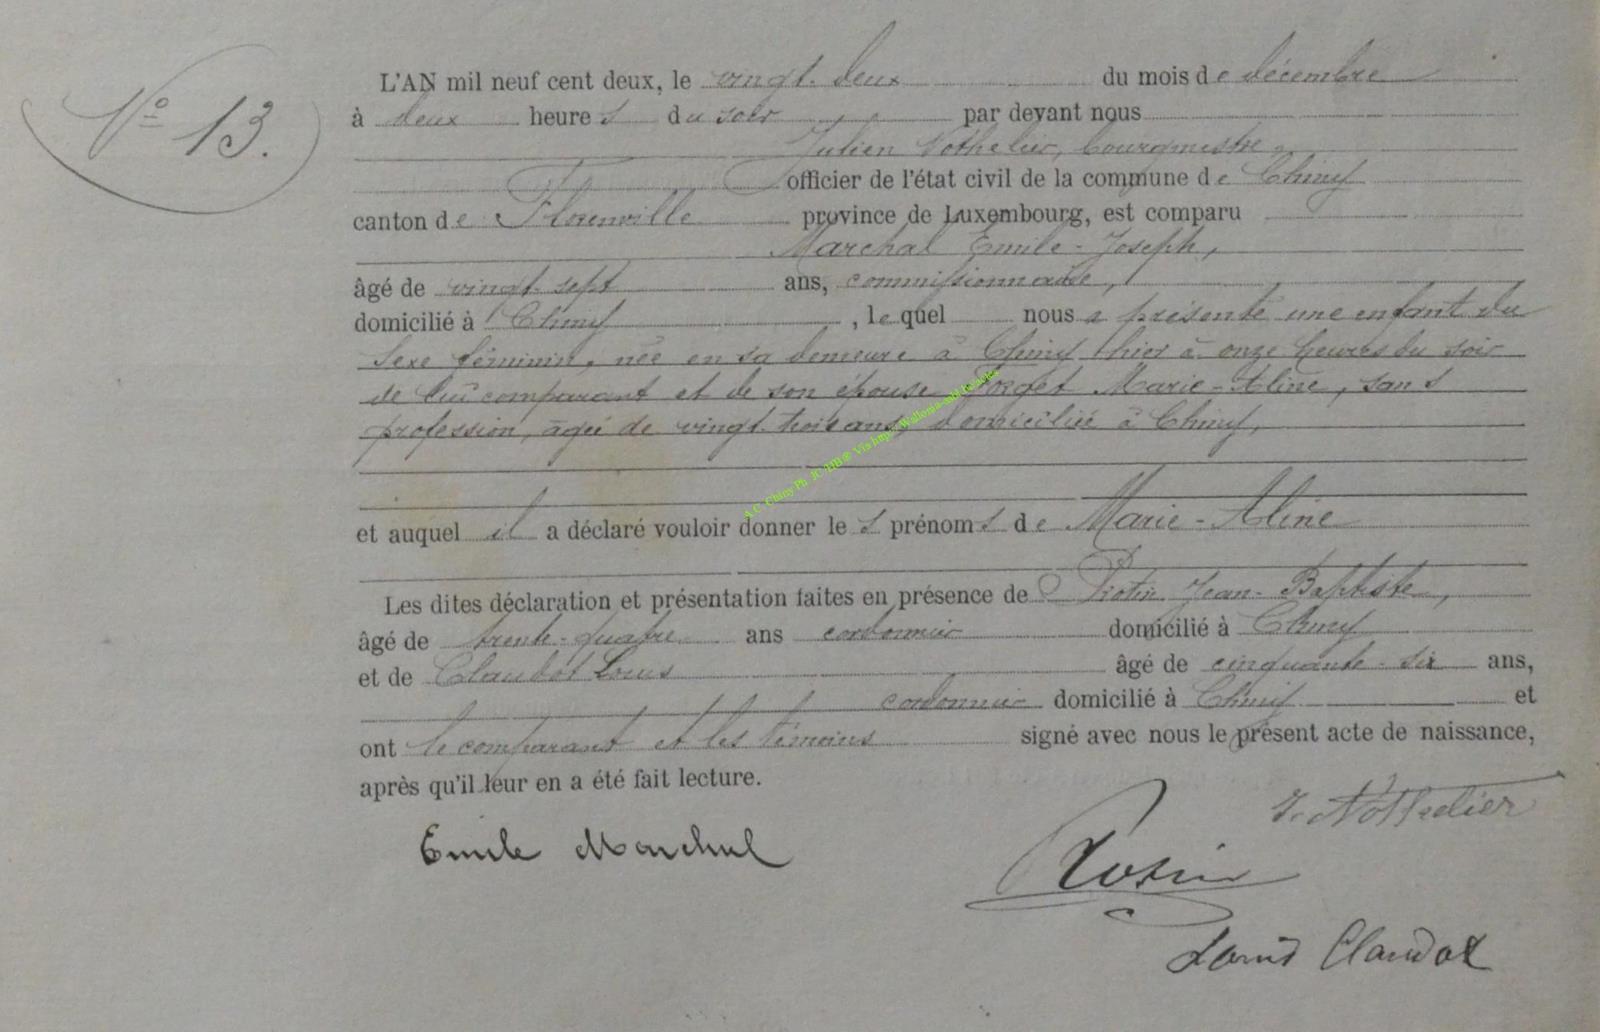 N° 13.
L'AN mil neuf cent deux, le vingt-deux du mois de décembre
à deux heures du soir par devant nous
Julien Nothelier, bourgmestre,
officier de l'état civil de la commune de Chiny
canton de Florenville province de Luxembourg, est comparu
Marchal Emile-Joseph,
âgé de vingt-sept ans, commissionnaire,
domicilié à Chiny, lequel nous a présenté une enfant du
sexe féminin, née en sa demeure à Chiny hier à onze heures du soir
de lui comparant et de son épouse Forget Marie-Aline, sans
profession, âgée de vingt-trois ans, domiciliée à Chiny,
A.C. Chiny Ph JC
et auquel il a déclaré vouloir donner les prénoms de Marie-Aline
Les dites déclaration et présentation faites en présence de Jean-Baptiste,
âgé de trente-quatre ans cordonnier domicilié à Chiny
et de Claudot Louis âgé de cinquante-six ans,
cordonnier domicilié à Chiny et
ont le comparant et les témoins signé avec nous le présent acte de naissance,
après qu'il leur en a été fait lecture.
J. Nothelier
Emile Marchal
Louis Claudot